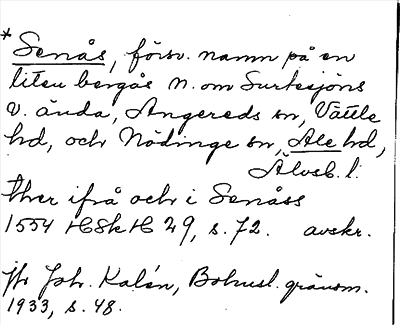 * Senås, försv. namn på en
liten bergås N. om Surtesjöns
v. ända, Angereds sn, Vättle
hd, och Nödinge sn, Ale hd,
Älvsb. l.
ther ifrå och i Senåss
1554 HSkH 29, s. 72. avskr.
Jfr Joh. Kalén, Bohusl. gränsm.
1933, s. 48.